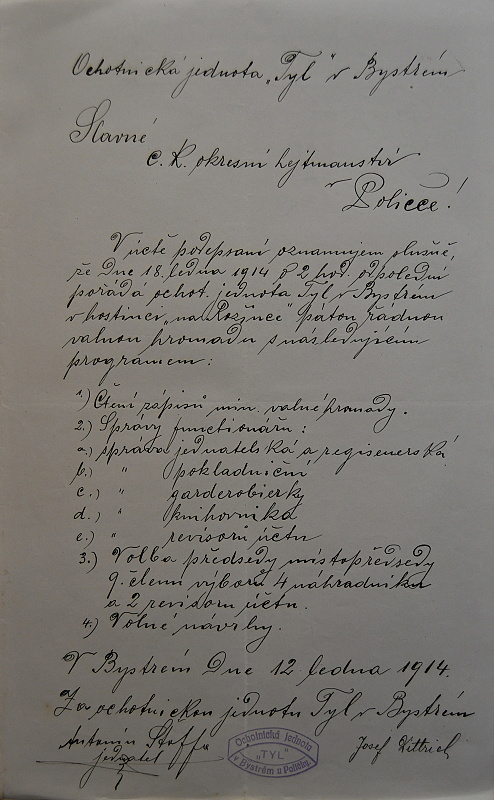 Ochotnická jednota „Tyl" v Bystrém
Slavné
C. K. okresní hejtmanství
v Poličce!
V úctě podepsaní oznamujem slušně,
že Dne 18. ledna 1914 o 2 hod. odpolední
pořádá ochot. jednota Tyl v Bystrém
v hostinci „na Rožince" patou řádnou
valnou hromadu s následujícím
programem:
1.) Čtení zápisů min. valné hromady.
2.) Správy functionářu:
a.) správa jednatelská a regisenerská
b.) " pokladniční
c.) " garderobierky
d.) " knihovníka
e.) " revisorů účtu
3.) Volba předsedy místopředsedy
9. členů výboru 4 náhradníku
a 2 revisoru účtu.
4.) Volné návrhy.
V Bystrém Dne 12. ledna 1914.
Za ochotnickou jednotu Tyl v Bystrém
Antonín Štoffl
jednatel
Ochotnická jednota
„TYL"
v Bystrém u Poličky.
Josef Dittrich